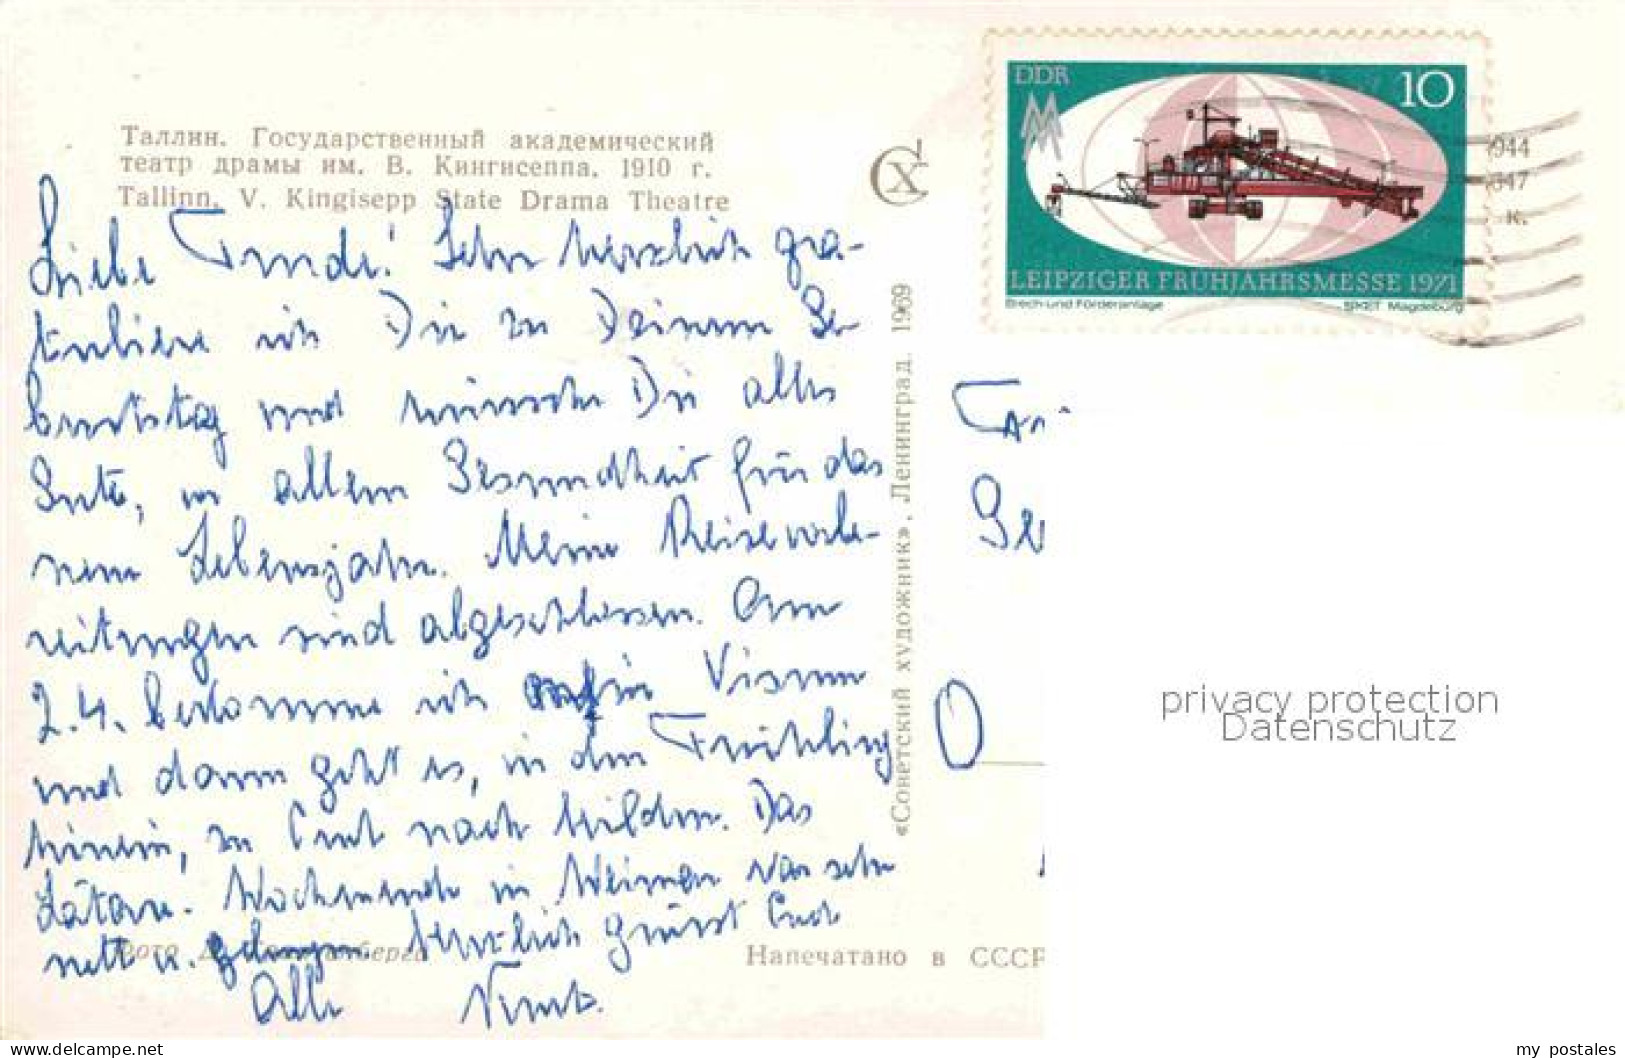 Таллин. Государственный академический
театр драмы им. В. Кингисеппа. 1910 г.
Tallinn. V. Kingisepp State Drama Theatre
СХ
DDR
10
LEIPZIGER FRÜHJAHRSMESSE 1971
Brech-und Förderanlage
SKET Magdeburg
944
347
к.
Liebe Trude! Sehr herzlich gra-
tuliere ich Dir zu Deinem Ge-
burtstag und wünsche Dir alles
Gute, vor allem Gesundheit für das
neue Lebensjahr. Meine Reisevorbe-
reitungen sind abgeschlossen. Am
2.4. bekomme ich mein Visum
und dann geht es, in den Frühling
hinein, zu Euch nach
Das
Lätare-Wochenende in Weimar war sehr
nett u. gelungen. Herzlich grüsst Euch
Alle
«Советский художник», Ленинград 1969
Напечатано в СССР
privacy protection
Datenschutz
my postales
www.delcampe.net